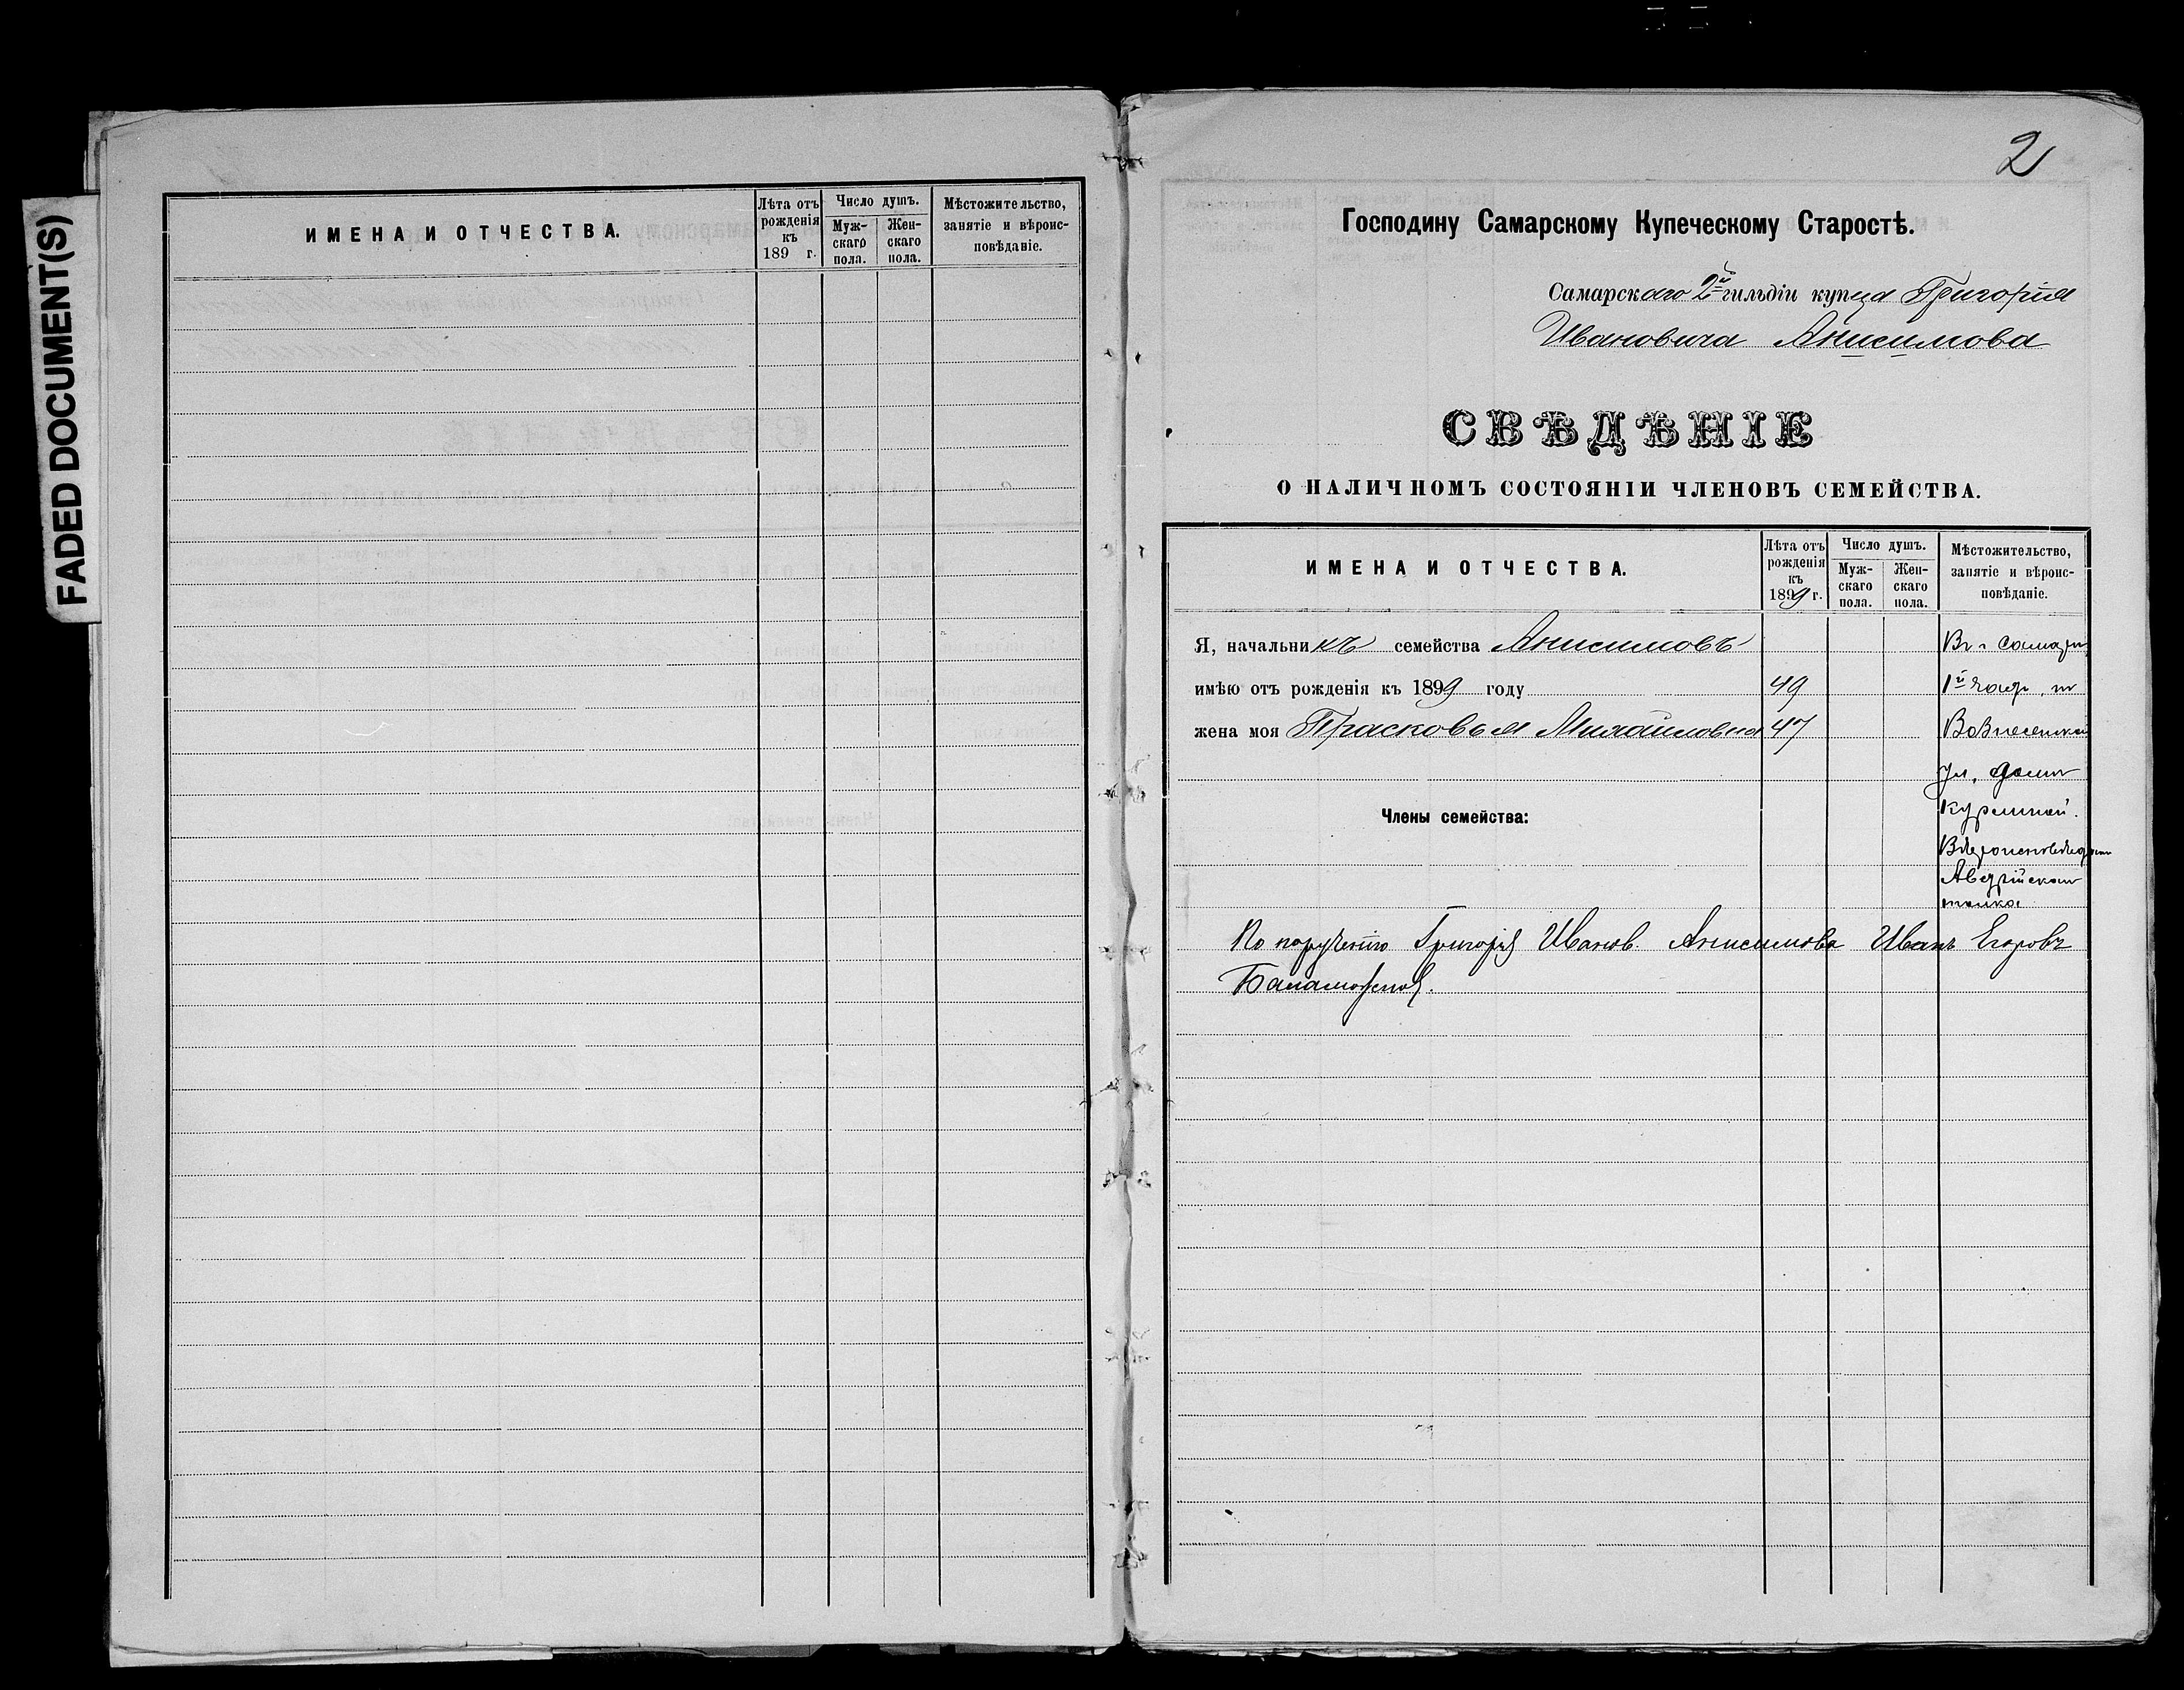 FADED DOCUMENT(S)
ИМЕНА И ОТЧЕСТВА.
Лѣта отъ рожденія къ 189 г.
Число душъ.
Муж-скаго пола.
Жен-скаго пола.
Мѣстожительство, занятіе и вѣроис-повѣданіе.
2
Господину Самарскому Купеческому Старостѣ.
Самарскаго 2й гильдіи купца Григорія
Ивановича Анисимова
СВѢДѢНІЕ
О НАЛИЧНОМЪ СОСТОЯНІИ ЧЛЕНОВЪ СЕМЕЙСТВА.
ИМЕНА И ОТЧЕСТВА.
Лѣта отъ рожденія къ 1899 г.
Число душъ.
Муж-скаго пола.
Жен-скаго пола.
Мѣстожительство, занятіе и вѣроис-повѣданіе.
Я, начальникъ семейства Анисимовъ
имѣю отъ рожденія къ 1899 году 49
жена моя Прасковья Михайловна 47
Члены семейства:
Въ г Самарѣ,
1й част, по
Вознесенской
ул, домъ
Австрійскаго
толка
По порученію Григорія Иванов. Анисимова Иванъ Егоровъ